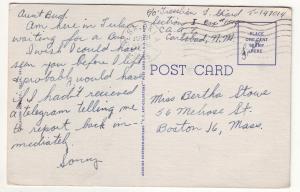 Aunt Bud,
Am here in
waiting for a Bus.
I wish I could have
seen you before I left
& probably would have
if I hadn't recieved
a telegram telling me
to report back im-
mediately.
Sonny
Section
Carlsbad, N.M.
PLACE
ONE CENT
STAMP
HERE
POST CARD
Miss Bertha Stowe
56 Melrose St.
Boston 16, Mass.